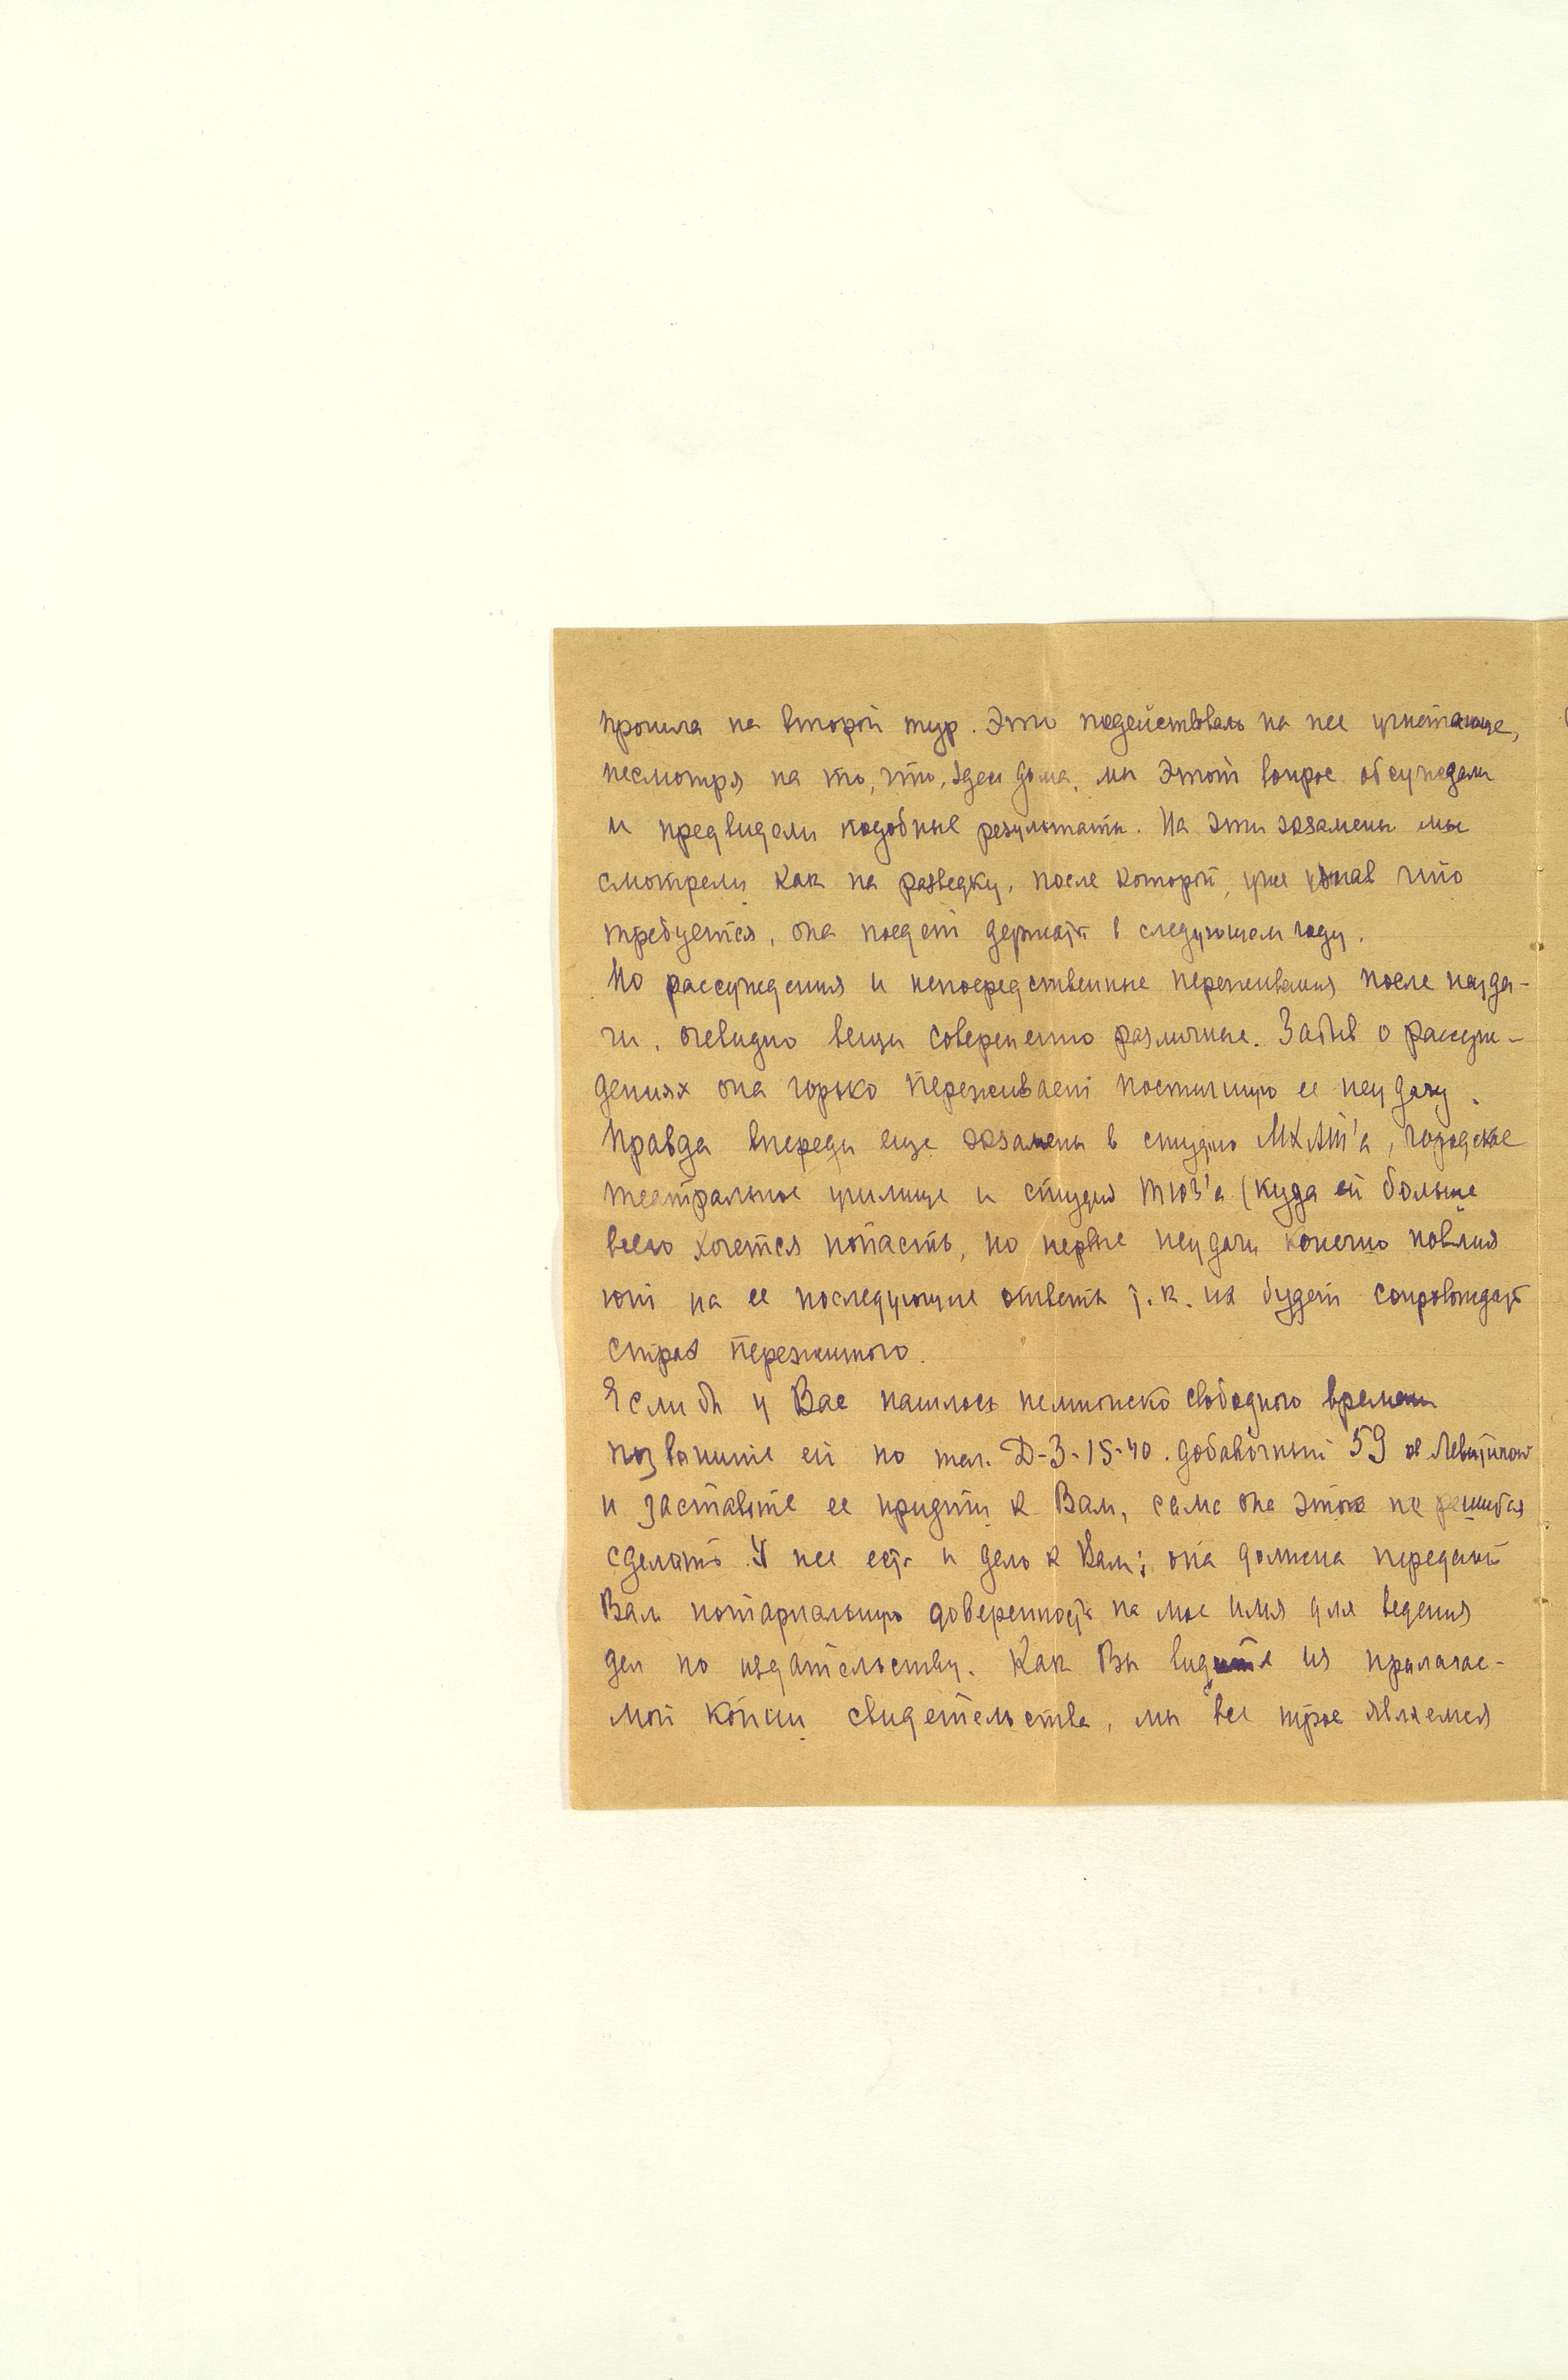 прошла на второй тур. Это подействовало на нее угнетающе,
несмотря на то, что, здесь дома, мы этот вопрос обсуждали
и предвидели подобные результаты. На эти экзамены мы
смотрели как на разведку, после которой, уже узнав что
требуется, она поедет держать в следующем году.
Но рассуждения и непосредственные переживания после неуда-
чи, очевидно вещи совершенно различные. Забыв о рассуж-
дениях она горько переживает постигшую ее неудачу.
Правда впереди еще экзамены в студию МХАТ'а, городское
театральное училище и студия ТЮЗ'а (куда ей больше
всего хочется попасть, но первые неудачи конечно повлия
ют на ее последующие ответы т.к. их будет сопровождать
страх пережитого.
Если бы у Вас нашлось немножко свободного времени
позвоните ей по тел. Д-3-15-40. добавочный 59
и заставьте ее придти к Вам, сама она этого не решится
сделать. У нее есть и дело к Вам; она должна передать
Вам нотариальную доверенность на мое имя для ведения
дел по издательству. Как Вы видите из прилагае-
мой копии свидетельства, мы все трое являемся